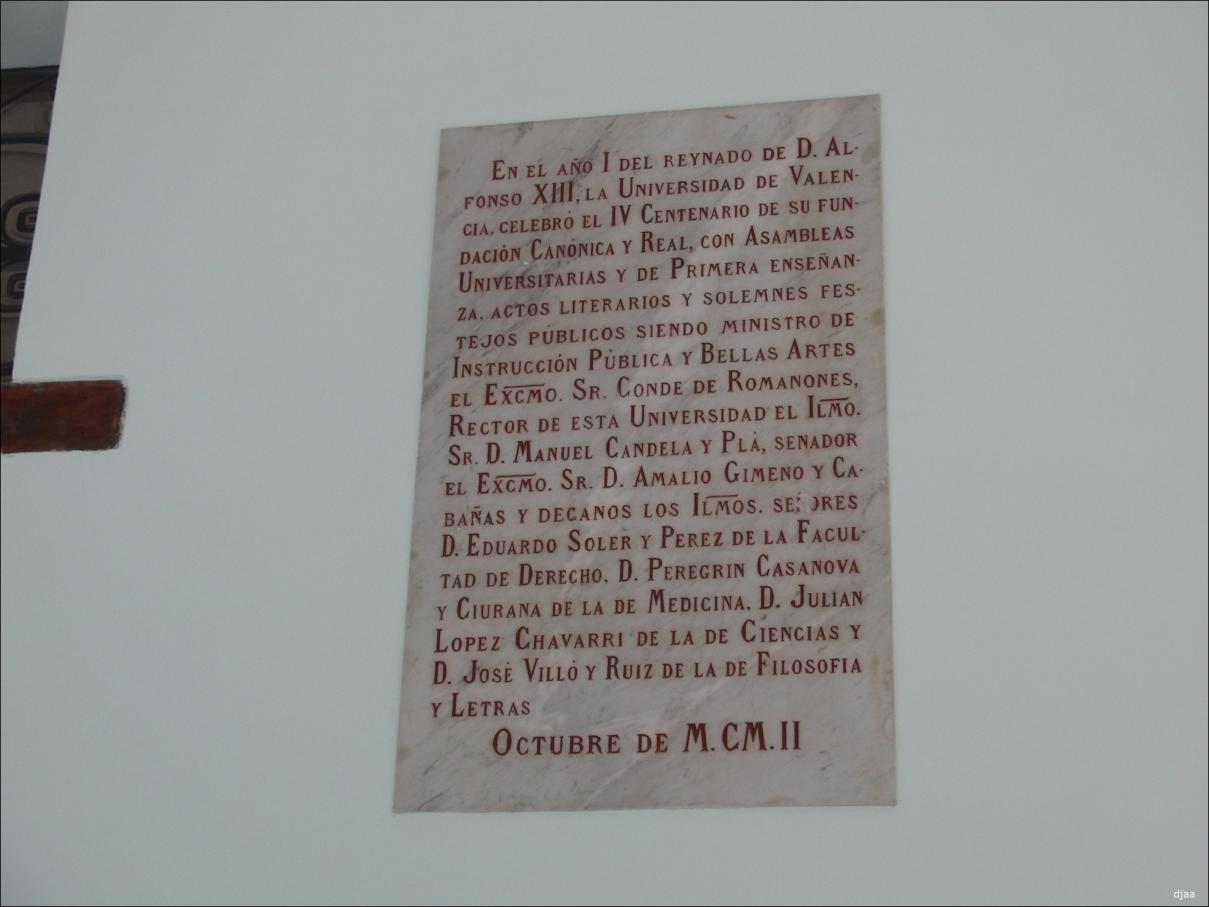 EN EL AÑO I DEL REYNADO DE D. AL-
FONSO XIII, LA UNIVERSIDAD DE VALEN-
CIA, CELEBRÓ EL IV CENTENARIO DE SU FUN-
DACIÓN CANÓNICA Y REAL, CON ASAMBLEAS
UNIVERSITARIAS Y DE PRIMERA ENSEÑAN-
ZA, ACTOS LITERARIOS Y SOLEMNES FES-
TEJOS PÚBLICOS SIENDO MINISTRO DE
INSTRUCCIÓN PÚBLICA Y BELLAS ARTES
EL EXCMO. SR. CONDE DE ROMANONES,
RECTOR DE ESTA UNIVERSIDAD EL ILMO.
SR. D. MANUEL CANDELA Y PLÁ, SENADOR
EL EXCMO. SR. D. AMALIO GIMENO Y CA-
BAÑAS Y DECANOS LOS ILMOS. SEÑORES
D. EDUARDO SOLER Y PEREZ DE LA FACUL-
TAD DE DERECHO, D. PEREGRIN CASANOVA
Y CIURANA DE LA DE MEDICINA, D. JULIAN
LOPEZ CHAVARRI DE LA DE CIENCIAS Y
D. JOSÉ VILLÓ Y RUIZ DE LA DE FILOSOFIA
Y LETRAS
OCTUBRE DE M.CM.II
djaa